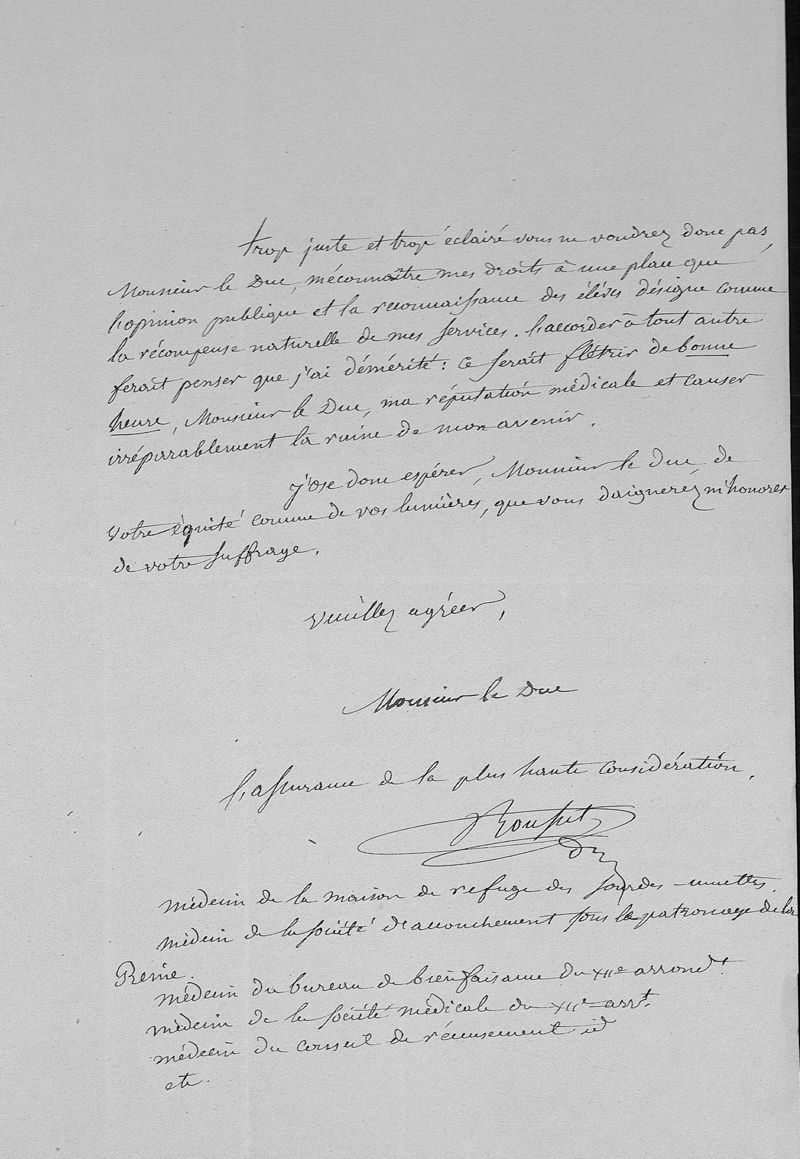 trop juste et trop éclairé vous ne voudrez donc pas,
Monsieur le Duc, méconnaître mes droits à une place que
l'opinion publique et la reconnaissance des élèves désigne comme
la récompense naturelle de mes services. L'accorder à tout autre
ferait penser que j'ai démérité : ce serait flétrir de bonne
heure, Monsieur le Duc, ma réputation médicale et causer
irréparablement la ruine de mon avenir.
j'ose donc espérer, Monsieur le duc, de
votre équité comme de vos lumières, que vous daignerez m'honorer
de votre suffrage.
Veuillez agréer,
Monsieur le Duc
l'assurance de la plus haute considération.
médecin de la maison de refuge des sourdes-muettes.
médecin de la société d'accouchement sous le patronage de la
Reine.
médecin du bureau de bienfaisance du XIIe arrondt.
médecin de la société médicale du XIIe arrt.
médecin du conseil de récensement id
etc.